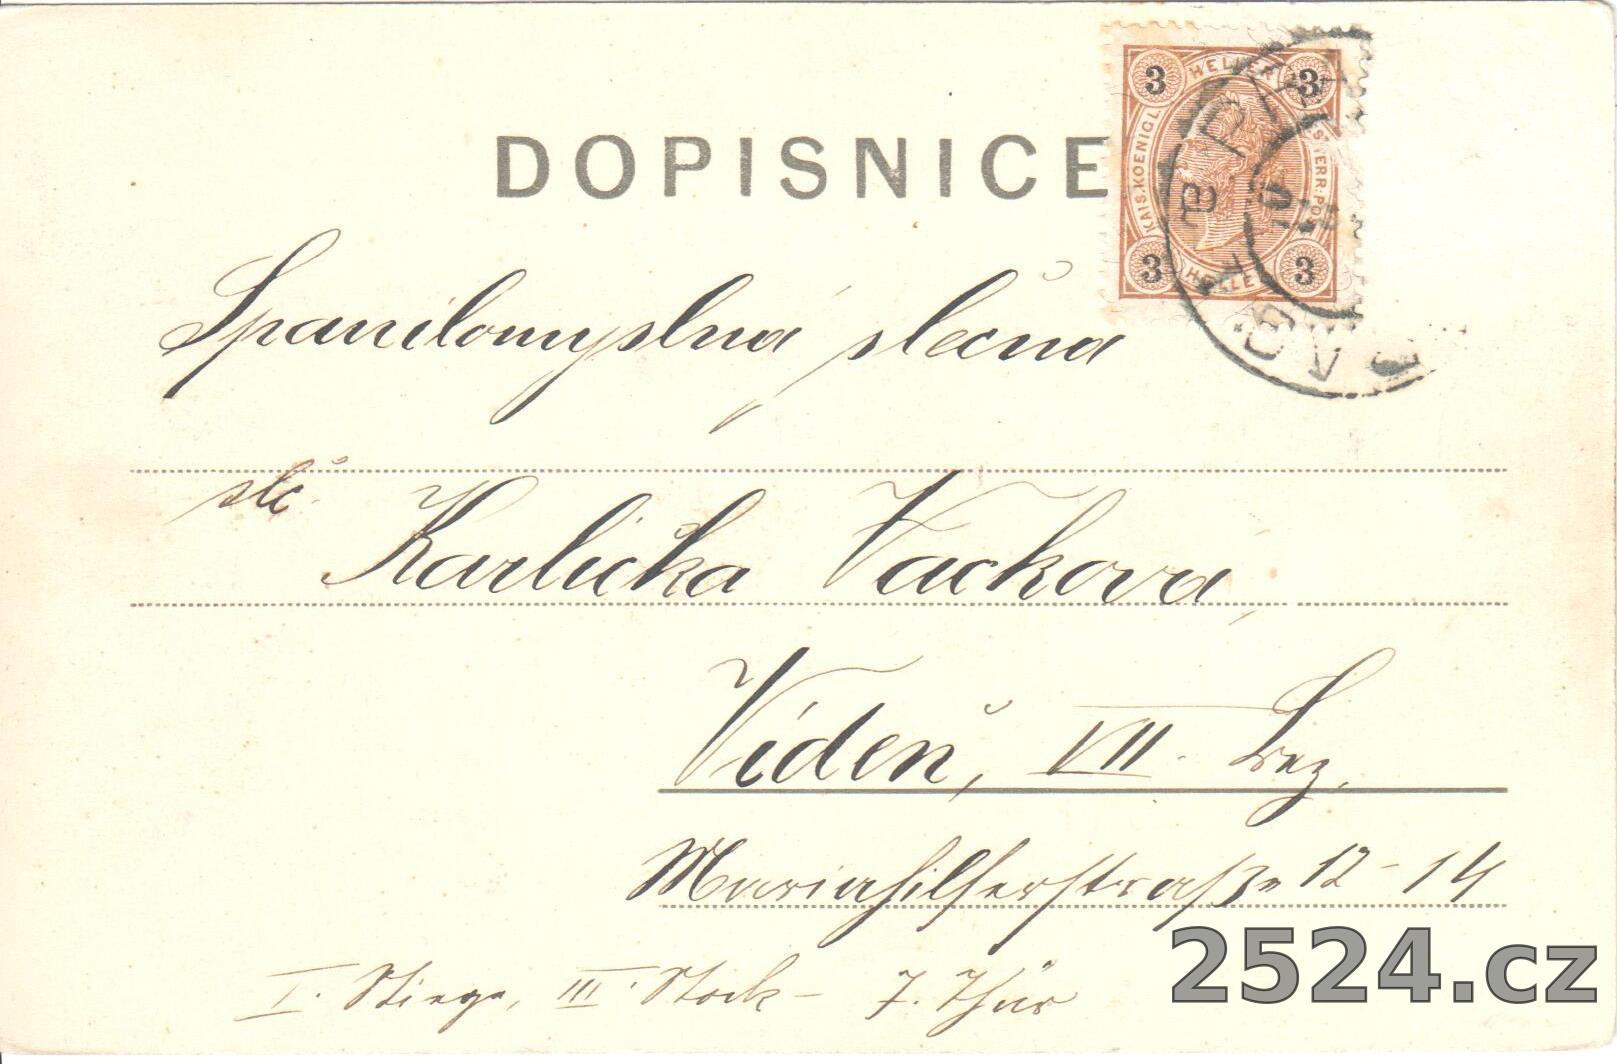 DOPISNICE
3 HELLER 3
KAIS. KOENIGL. OESTERR: POST
3 HELLER 3
10
Spanilomyslná slečna
slč. Karlička Vacková,
Vídeň, VII. Bez.
Mariahilferstraße 12-14
I. Stiege, III. Stock - 7. Thür
2524.cz